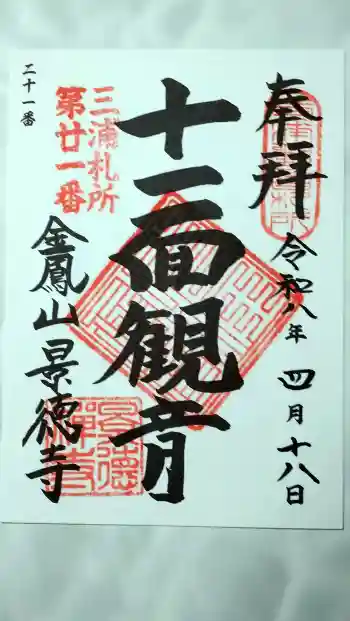 奉拝
令和八年 四月十八日
十一面観音
三浦札所
第廿一番
金鳳山 景徳寺
二十一番